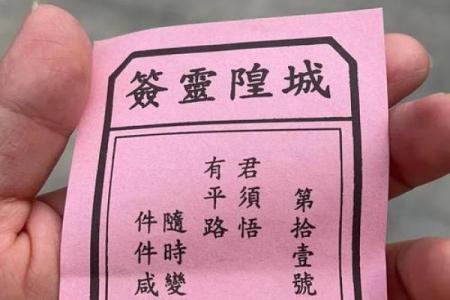 城隍靈簽
第拾壹號
君須悟
有平路
隨時變
件件咸